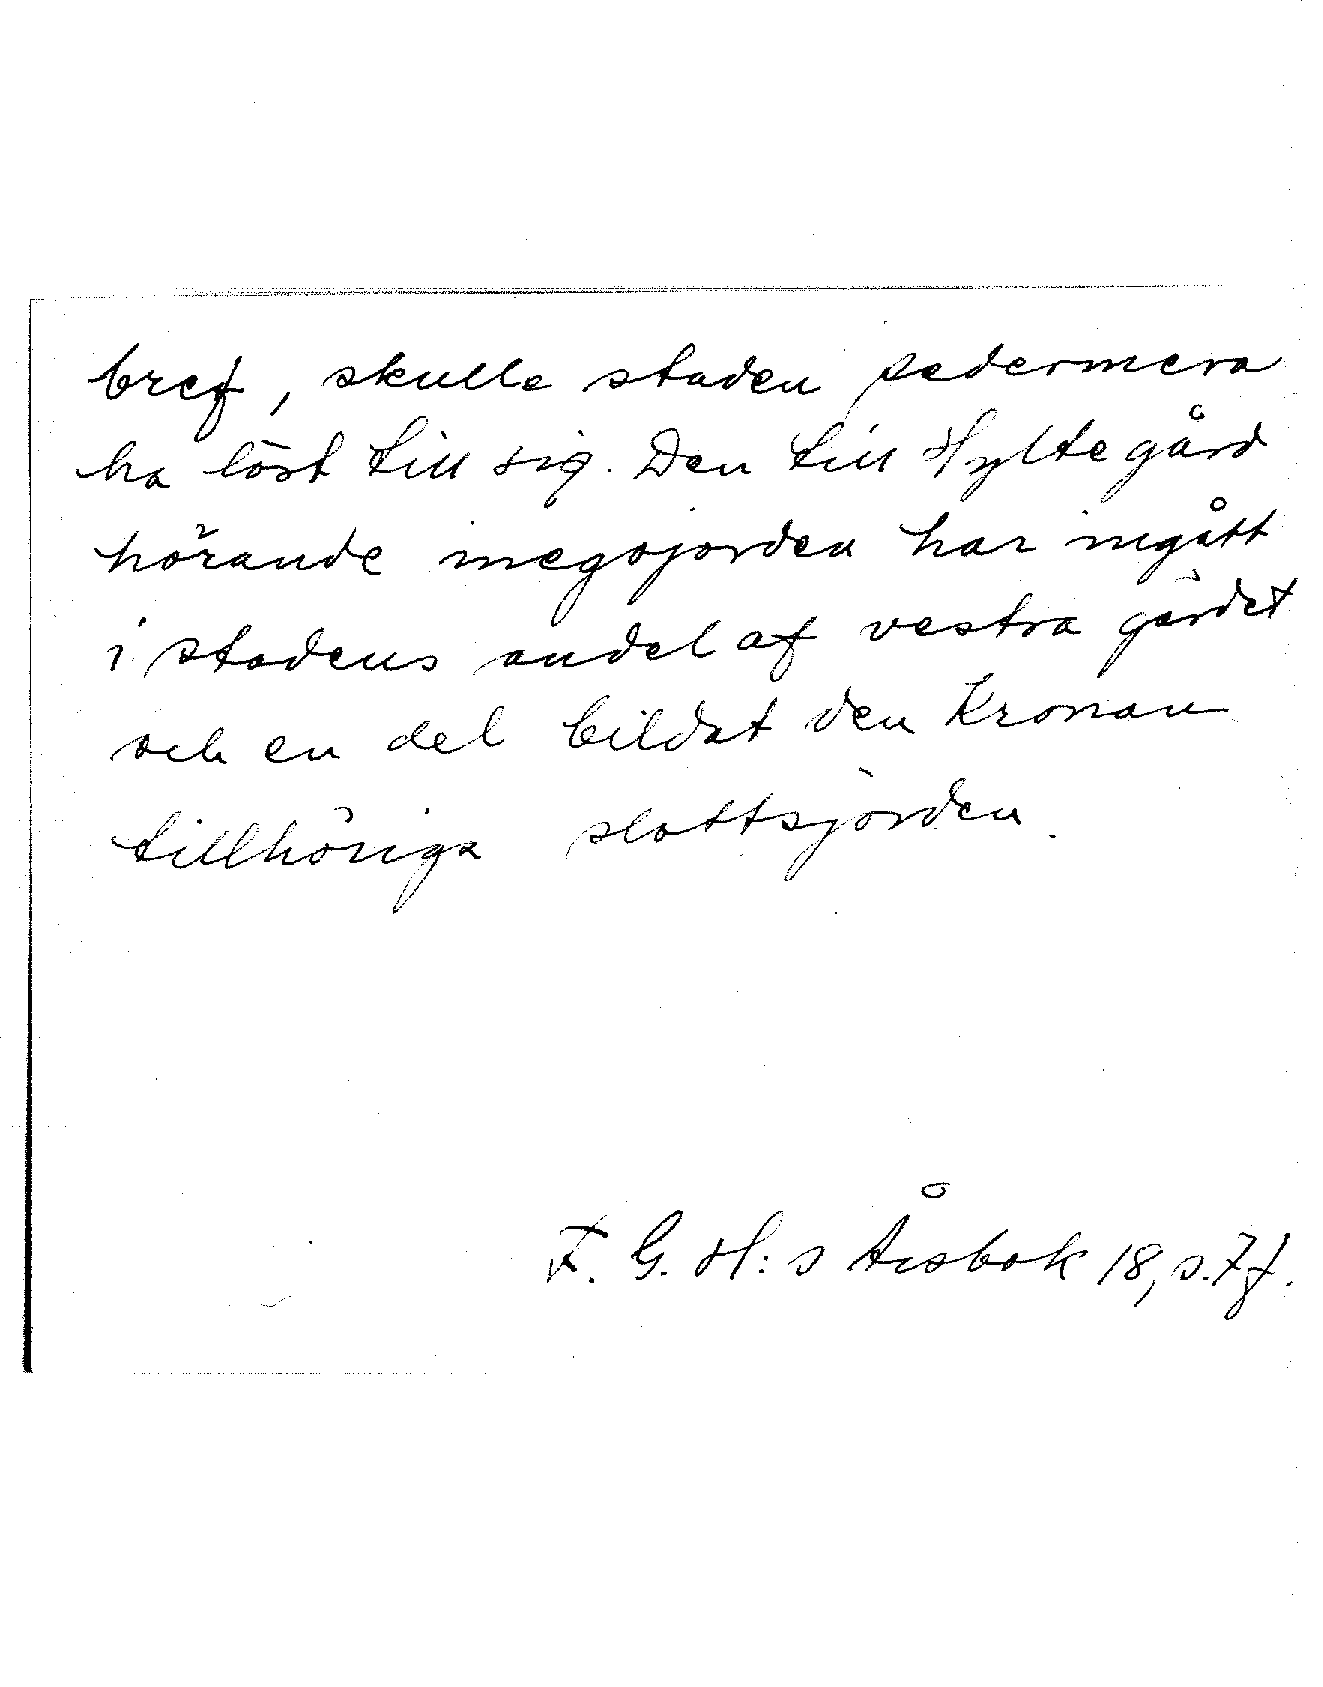 bref, skulle staden sedermera
ha löst till sig. Den till Hyltegård
hörande inegojorden har ingått
i stadens andel af vestra gärdet
och en del bildat den Kronan
tillhöriga slottsjorden.
F. G. H:s Årsbok 18, s. 7 f.